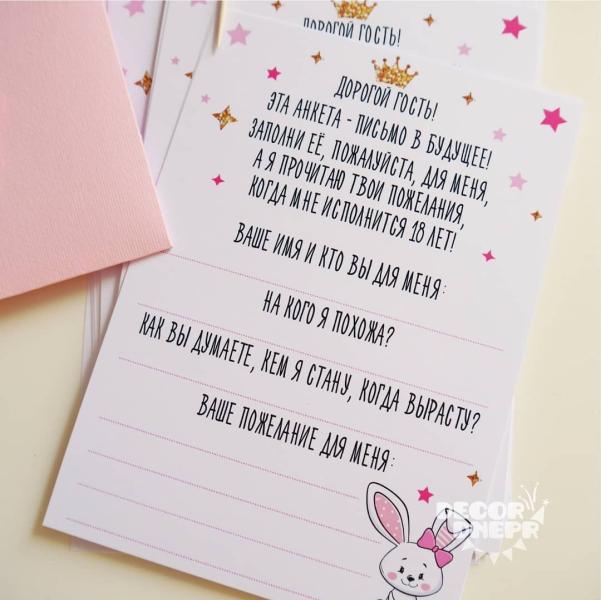 ДОРОГОЙ ГОСТЬ!
ДОРОГОЙ ГОСТЬ!
ЭТА АНКЕТА - ПИСЬМО В БУДУЩЕЕ!
ЗАПОЛНИ ЕЁ, ПОЖАЛУЙСТА, ДЛЯ МЕНЯ,
А Я ПРОЧИТАЮ ТВОИ ПОЖЕЛАНИЯ,
КОГДА МНЕ ИСПОЛНИТСЯ 18 ЛЕТ!
ВАШЕ ИМЯ И КТО ВЫ ДЛЯ МЕНЯ:
НА КОГО Я ПОХОЖА?
КАК ВЫ ДУМАЕТЕ, КЕМ Я СТАНУ, КОГДА ВЫРАСТУ?
ВАШЕ ПОЖЕЛАНИЕ ДЛЯ МЕНЯ:
DECOR
DNEPR